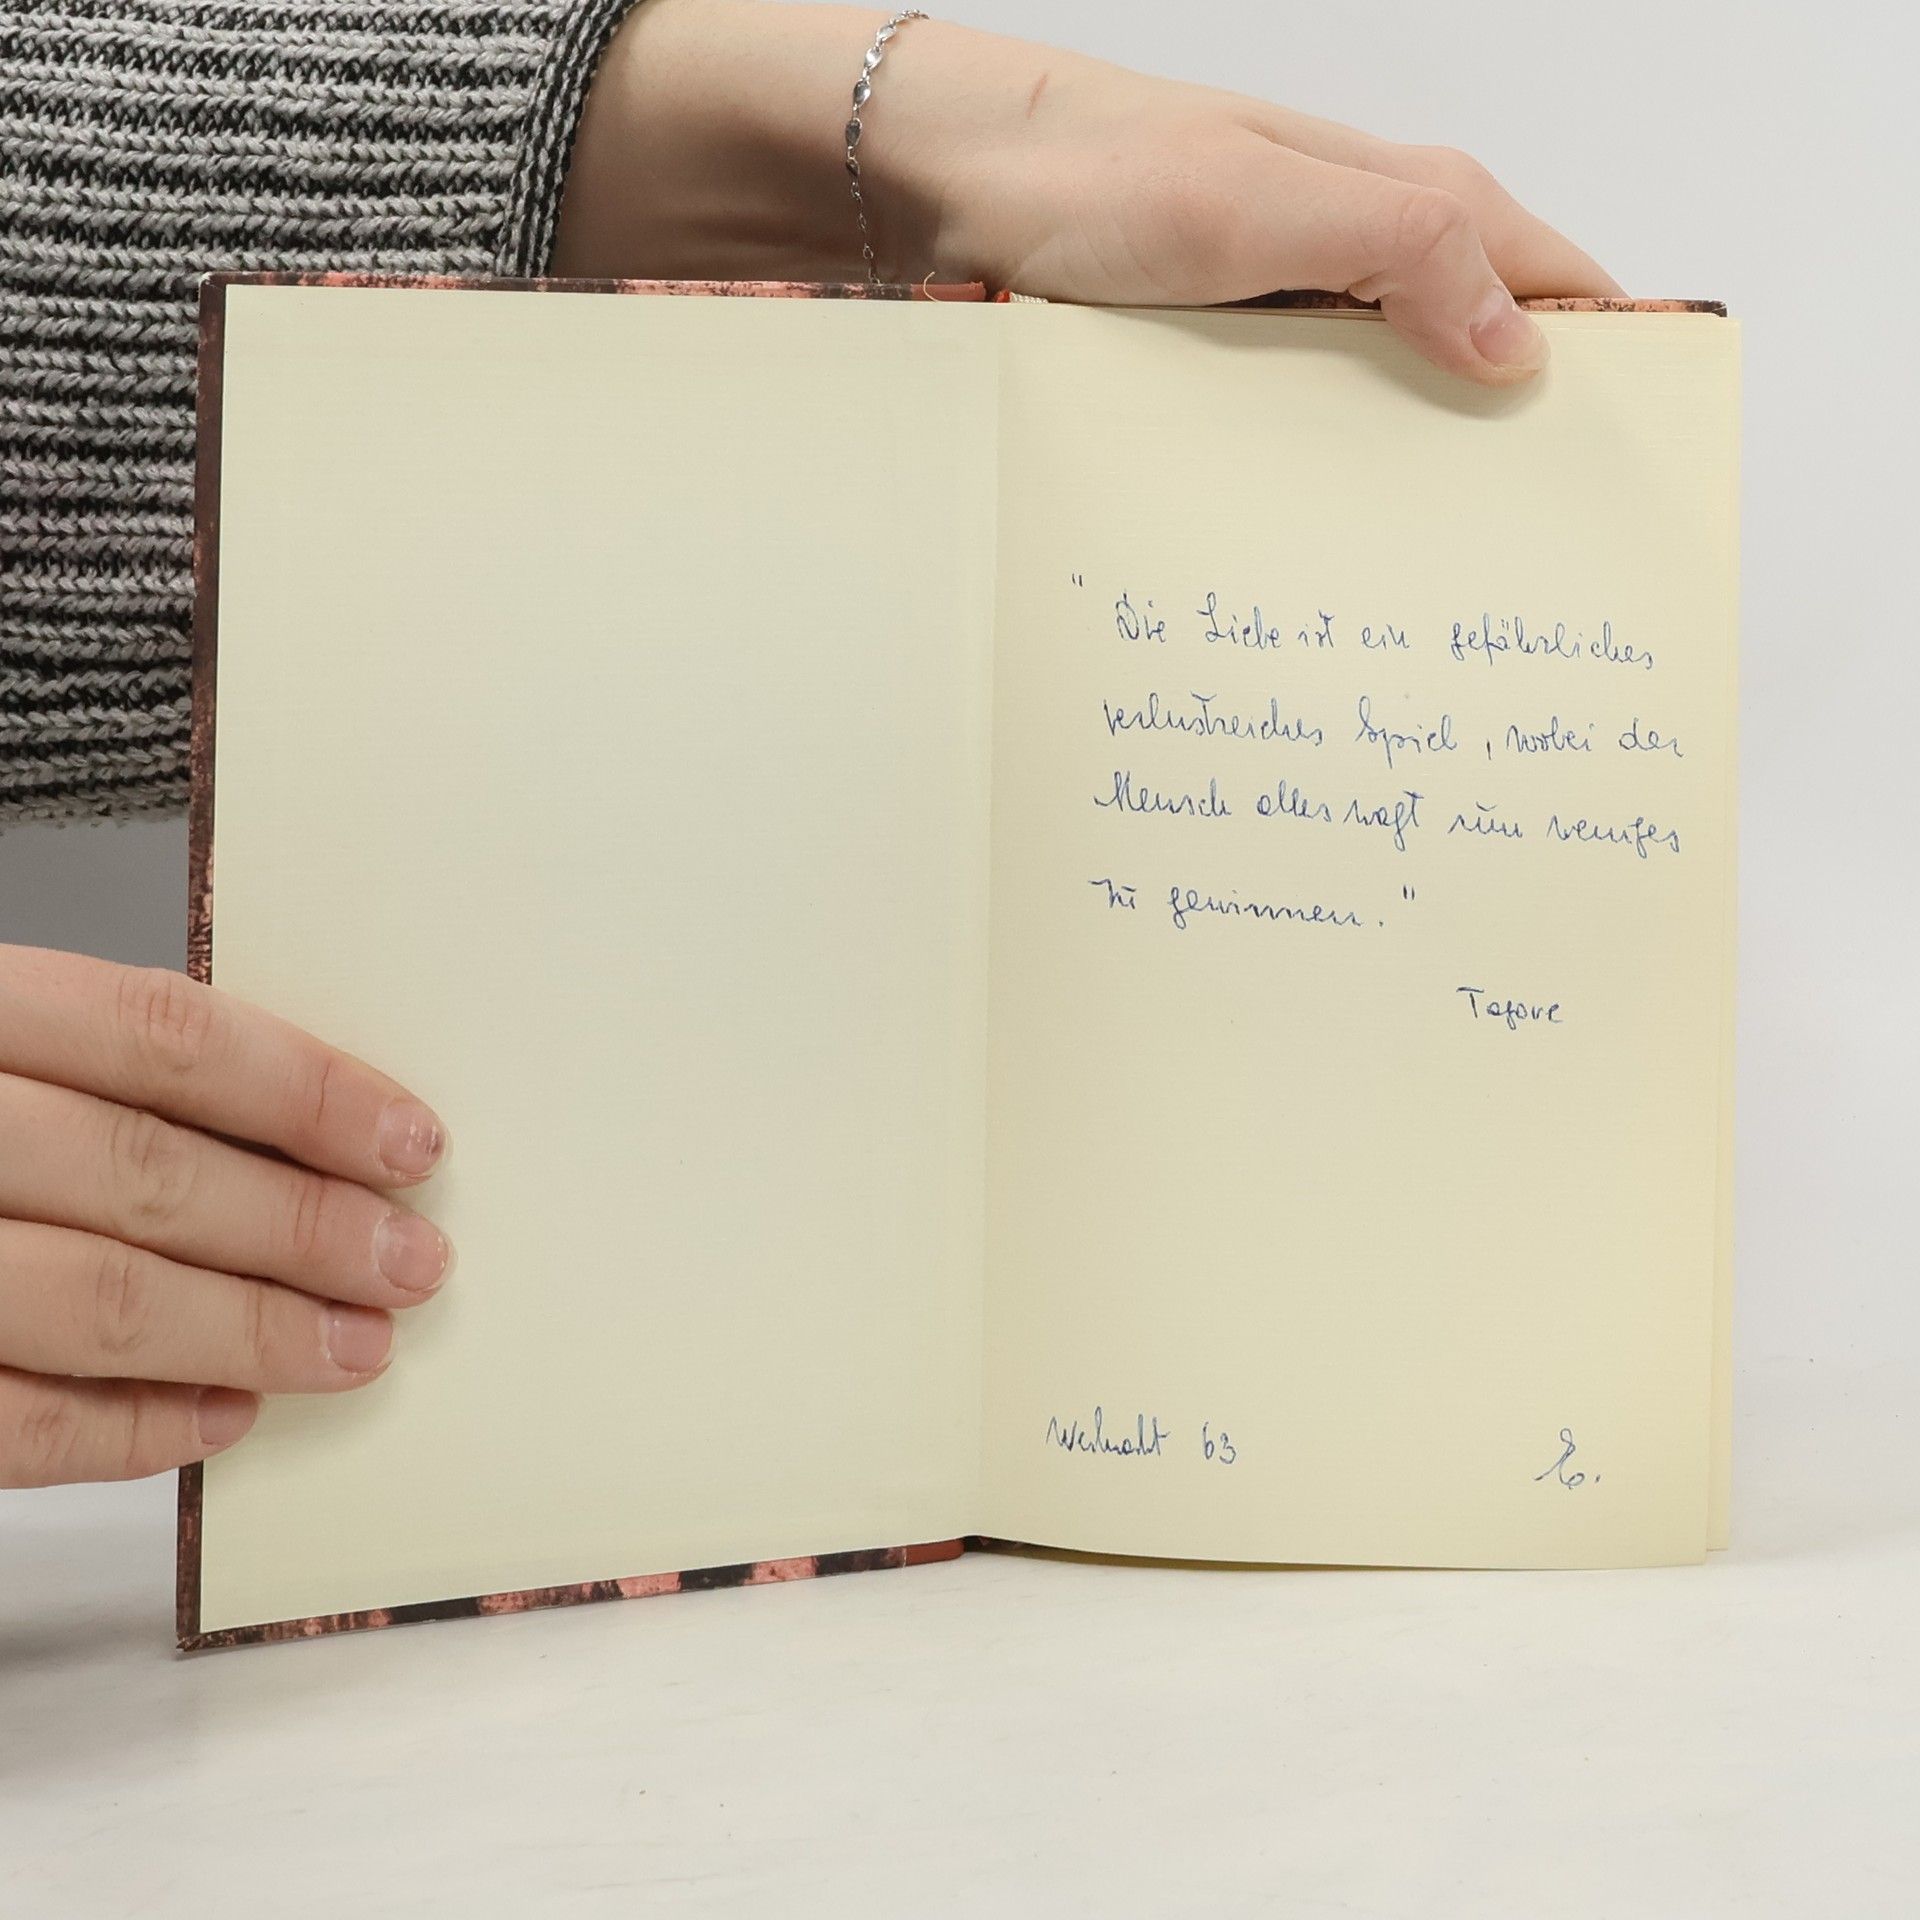 "Die Liebe ist ein gefährliches
verlustreiches Spiel, wobei der
Mensch alles wagt um weniges
zu gewinnen."
Tagore
Weihnacht 63
E.